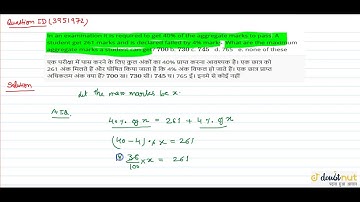 Question ID (3951972)
In an examination it is required to get 40% of the aggregate marks to pass. A
student get 261 marks and is declared failed by 4% marks. What are the maximum
aggregate marks a student can get? 700 b. 730 c. 745 d. 765 e. none of these
एक परीक्षा में पास करने के लिए कुल अंकों का 40% प्राप्त करना आवश्यक है। एक छात्र को
261 अंक मिलते हैं और घोषित किया जाता है कि 4% अंक विफल हो जाते है। एक छात्र प्राप्त
अधिकतम अंक क्या है? 700 ख। 730 सी। 745 घ। 765 ई। इनमें से कोई नहीं
Solution
Let the max marks be x.
A.T.Q.
40% of x = 261 + 4% of x
(40-4)% x = 261
36/100 × x = 261
doubtnut